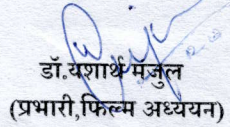 डॉ.यशार्थ मंजुल
(प्रभारी,फिल्म अध्ययन)